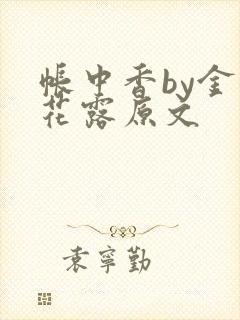 帳中香by金
花露原文
袁寧勤